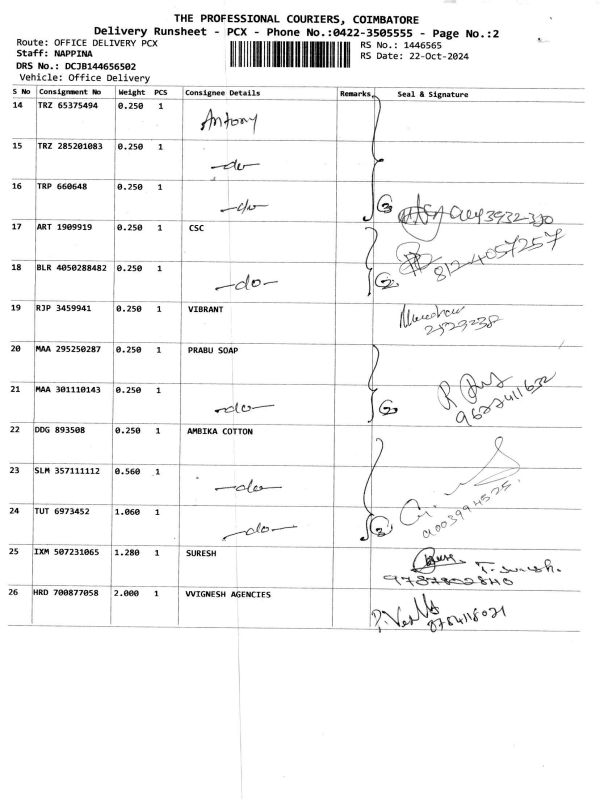 THE PROFESSIONAL COURIERS, COIMBATORE
Delivery Runsheet - PCX - Phone No.:0422-3505555 - Page No.:2
Route: OFFICE DELIVERY PCX
RS No.: 1446565
Staff: NAPPINA
RS Date: 22-Oct-2024
DRS No.: DCJB144656502
Vehicle: Office Delivery
S No Consignment No Weight PCS Consignee Details Remarks Seal & Signature
14 TRZ 65375494 0.250 1 Antony
15 TRZ 285201083 0.250 1 -do-
16 TRP 660648 0.250 1 -do- 3
17 ART 1909919 0.250 1 CSC
8124057257
18 BLR 4050288482 0.250 1 -do- 2
19 RJP 3459941 0.250 1 VIBRANT
20 MAA 295250287 0.250 1 PRABU SOAP
21 MAA 301110143 0.250 1 -do- 2
22 DDG 893508 0.250 1 AMBIKA COTTON
23 SLM 357111112 0.560 1 -do-
24 TUT 6973452 1.060 1 -do- 3
25 IXM 507231065 1.280 1 SURESH T. Suresh.
26 HRD 700877058 2.000 1 VVIGNESH AGENCIES